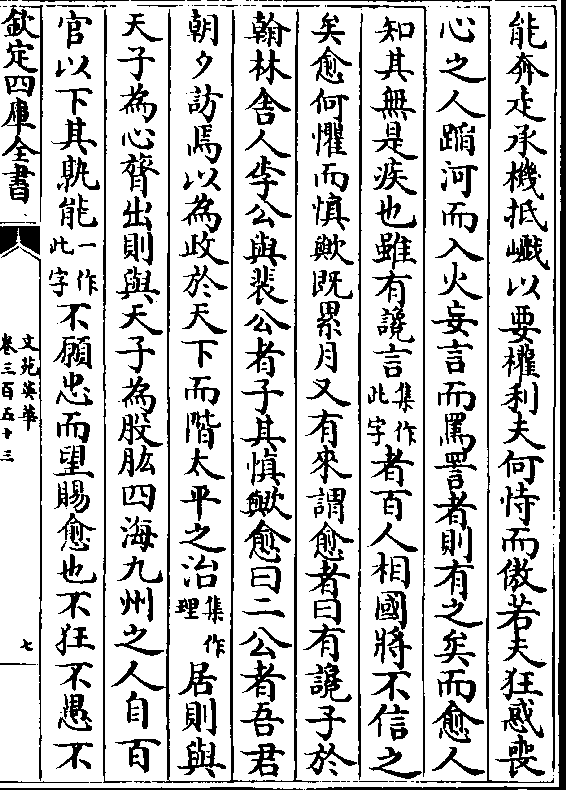 能奔走承機抵巇以要權利夫何恃而傲若夫狂惑喪
心之人蹈河而入火妄言而罵詈者則有之矣而愈人
知其無是疾也雖有讒言集作此字者百人相國將不信之
矣愈何懼而慎歟既累月又有來謂愈者曰有讒子於
翰林舎人李公與裴公者子其慎歟愈曰二公者吾君
朝夕訪焉以為政於天下而階太平之治集作理居則與
天子為心膂出則與天子為股肱四海九州之人自百
官以下其孰能一作此字不願忠而望賜愈也不狂不愚不
欽定四庫全書
文苑英華
卷三百五十三
七